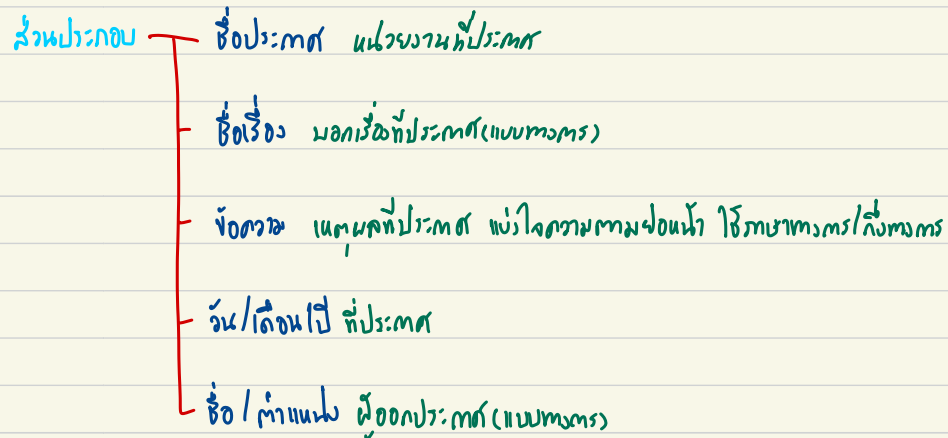 ส่วนประกอบ ชื่อประกาศ หน่วยงานที่ประกาศ
ชื่อเรื่อง บอกเรื่องที่ประกาศ(แบบทางการ)
ข้อความ เหตุผลที่ประกาศ แบ่งใจความตามย่อหน้า ใช้ภาษาทางการ/กึ่งทางการ
วัน/เดือน/ปี ที่ประกาศ
ชื่อ/ตำแหน่ง ผู้ออกประกาศ(แบบทางการ)